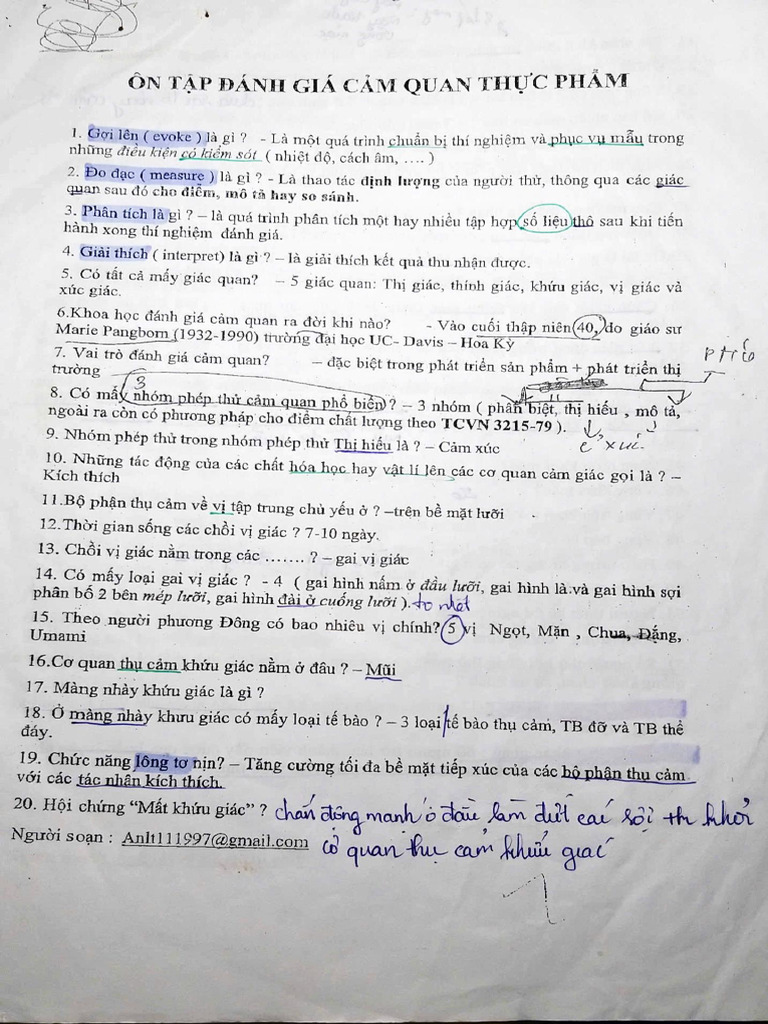 ÔN TẬP ĐÁNH GIÁ CẢM QUAN THỰC PHẨM
1. Gợi lên ( evoke ) là gì ? - Là một quá trình chuẩn bị thí nghiệm và phục vụ mẫu trong
những điều kiện có kiểm sót ( nhiệt độ, cách âm, .... )
2. Đo đạc ( measure ) là gì ? - Là thao tác định lượng của người thử, thông qua các giác
quan sau đó cho điểm, mô tả hay so sánh.
3. Phân tích là gì ? – là quá trình phân tích một hay nhiều tập hợp số liệu thô sau khi tiến
hành xong thí nghiệm đánh giá.
4. Giải thích ( interpret) là gì ? – là giải thích kết quả thu nhận được.
5. Có tất cả mấy giác quan? – 5 giác quan: Thị giác, thính giác, khứu giác, vị giác và
xúc giác.
6.Khoa học đánh giá cảm quan ra đời khi nào? - Vào cuối thập niên 40, do giáo sư
Marie Pangborn (1932-1990) trường đại học UC- Davis – Hoa Kỳ
7. Vai trò đánh giá cảm quan? – đặc biệt trong phát triển sản phẩm + phát triển thị
trường
3
8. Có mấy nhóm phép thử cảm quan phổ biến ? – 3 nhóm ( phân biệt, thị hiếu , mô tả,
ngoài ra còn có phương pháp cho điểm chất lượng theo TCVN 3215-79 ).
xúc
9. Nhóm phép thử trong nhóm phép thử Thị hiếu là ? – Cảm xúc
10. Những tác động của các chất hóa học hay vật lí lên các cơ quan cảm giác gọi là ? –
Kích thích
11.Bộ phận thụ cảm về vị tập trung chủ yếu ở ? –trên bề mặt lưỡi
12.Thời gian sống các chồi vị giác ? 7-10 ngày.
13. Chồi vị giác nằm trong các ....... ? – gai vị giác
14. Có mấy loại gai vị giác ? - 4 ( gai hình nấm ở đầu lưỡi, gai hình lá.và gai hình sợi
phân bố 2 bên mép lưỡi, gai hình đài ở cuống lưỡi ). to nhất
15. Theo người phương Đông có bao nhiêu vị chính? 5 vị Ngọt, Mặn , Chua, Đắng,
Umami
16.Cơ quan thụ cảm khứu giác nằm ở đâu ? – Mũi
17. Màng nhày khứu giác là gì ?
18. Ở màng nhày khưu giác có mấy loại tế bào ? – 3 loại tế bào thụ cảm, TB đỡ và TB thể
đáy.
19. Chức năng lông tơ nịn? – Tăng cường tối đa bề mặt tiếp xúc của các bộ phận thụ cảm
với các tác nhân kích thích.
20. Hội chứng “Mất khứu giác” ? chấn động mạnh ở đầu làm đứt các sợi tk khỏi
Người soạn : Anlt111997@gmail.com cơ quan thụ cảm khứu giác